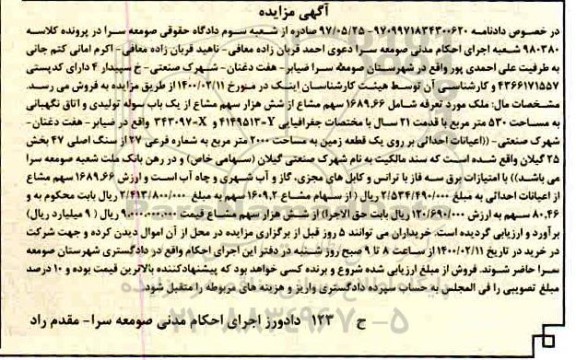 آگهی مزایده
در خصوص دادنامه ۹۷۰۹۹۷۱۸۳۴۳۰۰۶۲۰-۹۷/۰۵/۲۵ صادره از شعبه سوم دادگاه حقوقی صومعه سرا در پرونده کلاسه
۹۸۰۳۸۰ شعبه اجرای احکام مدنی صومعه سرا دعوی احمد قربان زاده معافی- ناهید قربان زاده معافی- اکرم امانی کتم جانی
به طرفیت علی احمدی پور واقع در شهرستان صومعه سرا ضیابر- هفت دغنان- شهرک صنعتی- خ سپیدار ۴ دارای کدپستی
۴۳۶۶۱۷۱۵۵۷ و کارشناسی آن توسط هیئت کارشناسان اینک در مورخ ۱۴۰۰/۰۲/۱۱ از طریق مزایده به فروش می رسد.
مشخصات مال: ملک مورد تعرفه شامل ۱۶۸۹.۶۶ سهم مشاع از شش هزار سهم مشاع از یک باب سوله تولیدی و اتاق نگهبانی
به مساحت ۵۳۰ متر مربع با قدمت ۲۱ سال با مختصات جغرافیایی Y-۴۱۴۹۵۱۳ و X-۳۴۳۰۹۷ واقع در ضیابر- هفت دغنان-
شهرک صنعتی- ((اعیانات احداثی بر روی یک قطعه زمین به مساحت ۲۰۰۰ متر مربع به شماره فرعی ۲۷ از سنگ اصلی ۴۷ بخش
۲۵ گیلان واقع شده است که سند مالکیت به نام شهرک صنعتی گیلان (سهامی خاص) و در رهن بانک ملت شعبه صومعه سرا
می باشد)) با امتیازات برق سه فاز با ترانس و کابل های مجزی، گاز و آب شهری و چاه آب است و ارزش ۱۶۸۹.۶۶ سهم مشاع
از اعیانات احداثی به مبلغ ۲/۵۳۴/۴۹۰/۰۰۰ ریال (از سهام مشاع ۱۶۰۹.۲ سهم به مبلغ ۲/۴۱۳/۸۰۰/۰۰۰ ریال بابت محکوم به و
۸۰.۴۶ سهم به ارزش ۱۲۰/۶۹۰/۰۰۰ ریال بابت حق الاجرا) از شش هزار سهم مشاع قیمت ۹.۰۰۰.۰۰۰.۰۰۰ ریال (۹ میلیارد ریال)
برآورد و ارزیابی گردیده است. خریداران می توانند ۵ روز قبل از برگزاری مزایده در محل از آن اموال دیدن کرده و جهت شرکت
در خرید در تاریخ ۱۴۰۰/۰۲/۱۱ از ساعت ۸ تا ۹ صبح روز شنبه در دفتر این اجرای احکام واقع در دادگستری شهرستان صومعه
سرا حاضر شوند. فروش از مبلغ ارزیابی شده شروع و برنده کسی خواهد بود که پیشنهادکننده بالاترین قیمت بوده و ۱۰ درصد
مبلغ تصویبی را فی المجلس به حساب سپرده دادگستری واریز و هزینه های مربوطه را متقبل شود.
ح ۱۲۳ دادورز اجرای احکام مدنی صومعه سرا- مقدم راد